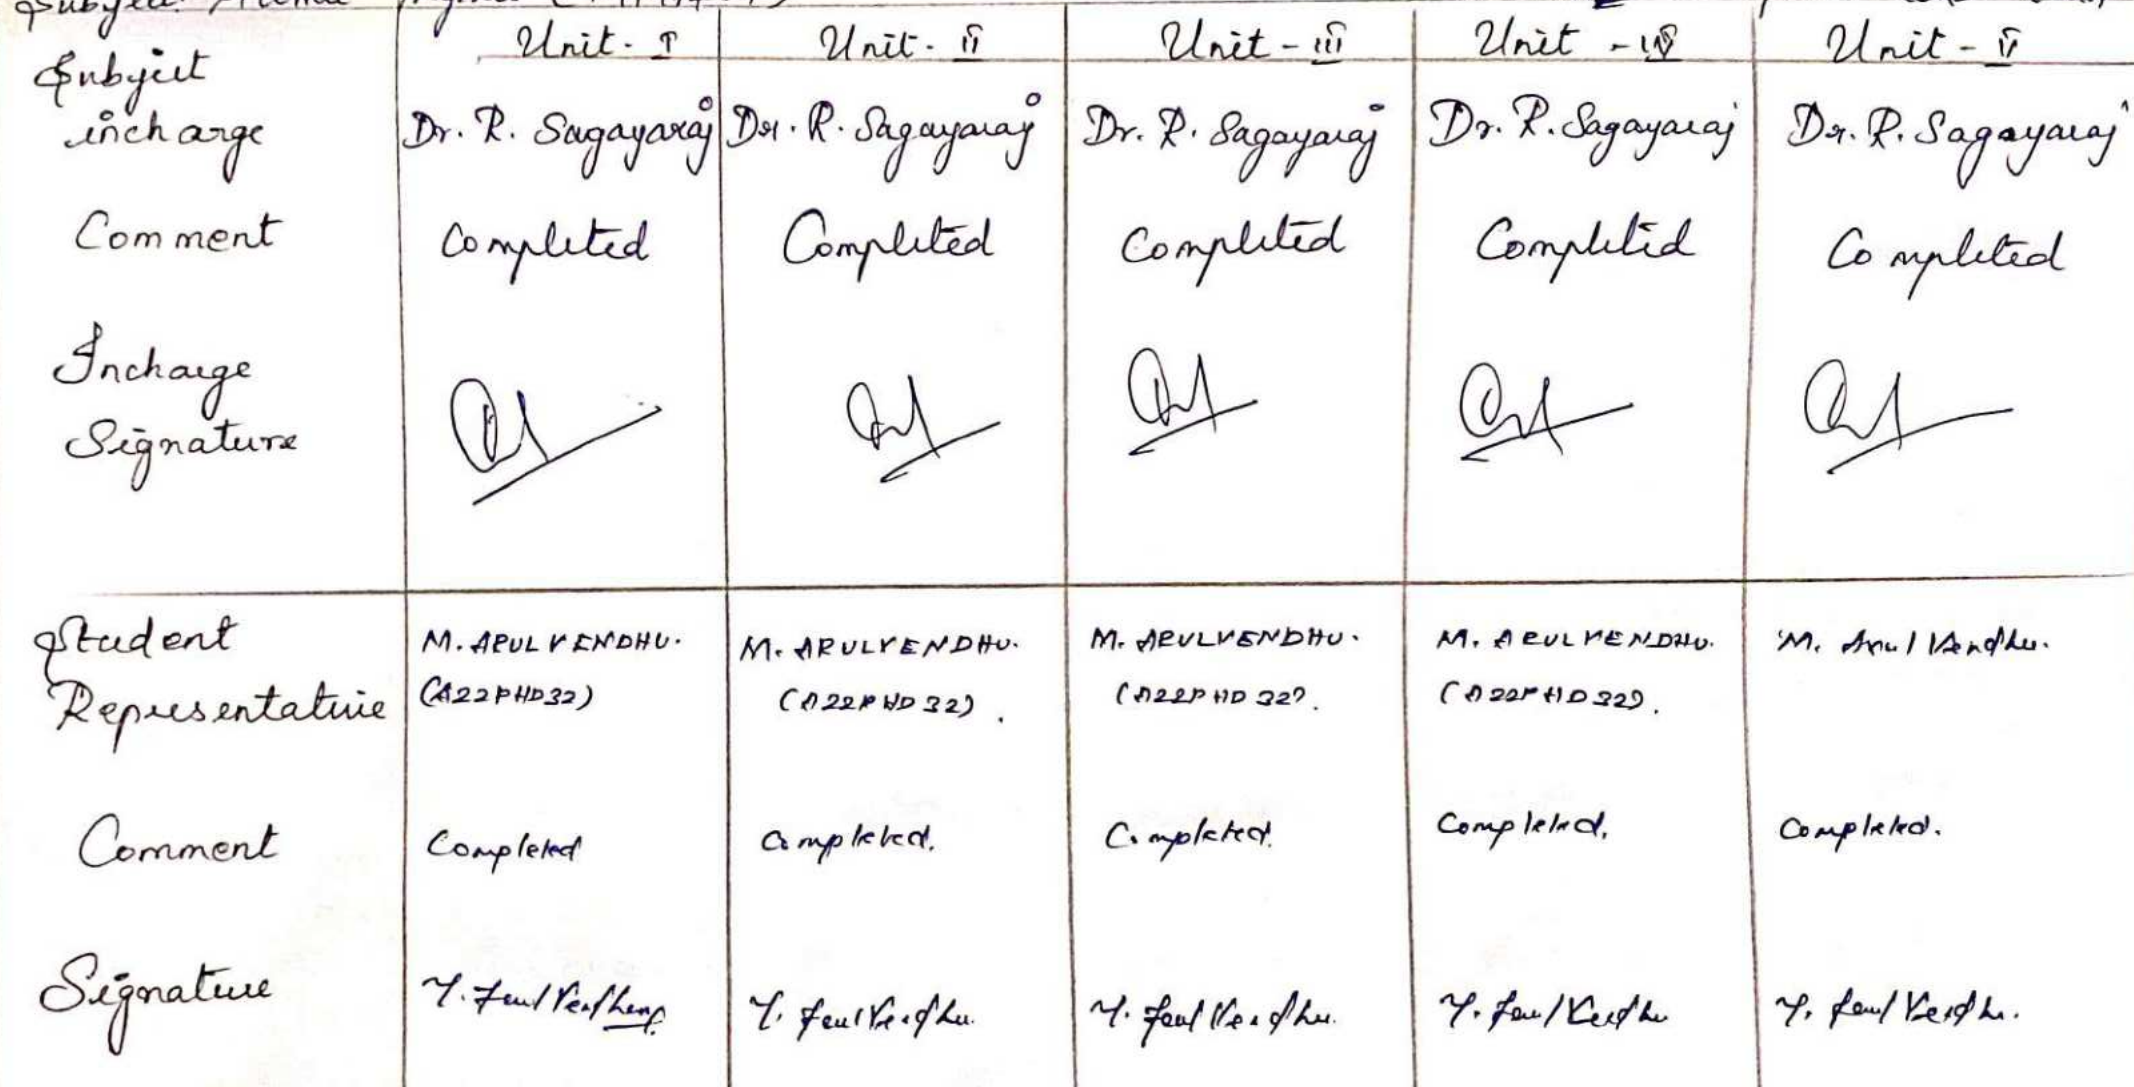 Subject
Unit - I Unit - II Unit - III Unit - IV Unit - V
Subject
incharge Dr. R. Sagayaraj Dr. R. Sagayaraj Dr. R. Sagayaraj Dr. R. Sagayaraj Dr. R. Sagayaraj
Comment Completed Completed Completed Completed Completed
Incharge
Signature
Student M. ARULVENDHU. M. ARULVENDHU. M. ARULVENDHU. M. ARULVENDHU. M. Arul Vendhu.
Representative (A22PHD32) (A22PHD32). (A22PHD32). (A22PHD32).
Comment Completed Completed. Completed. Completed. Completed.
Signature M. Arul Vendhu M. Arul Vendhu. M. Arul Vendhu. M. Arul Vendhu M. Arul Vendhu.